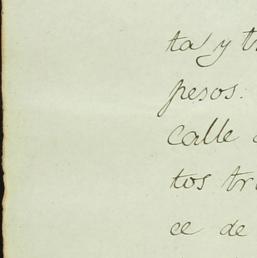 ta y tr
pesos.
calle
tos tr
ce de